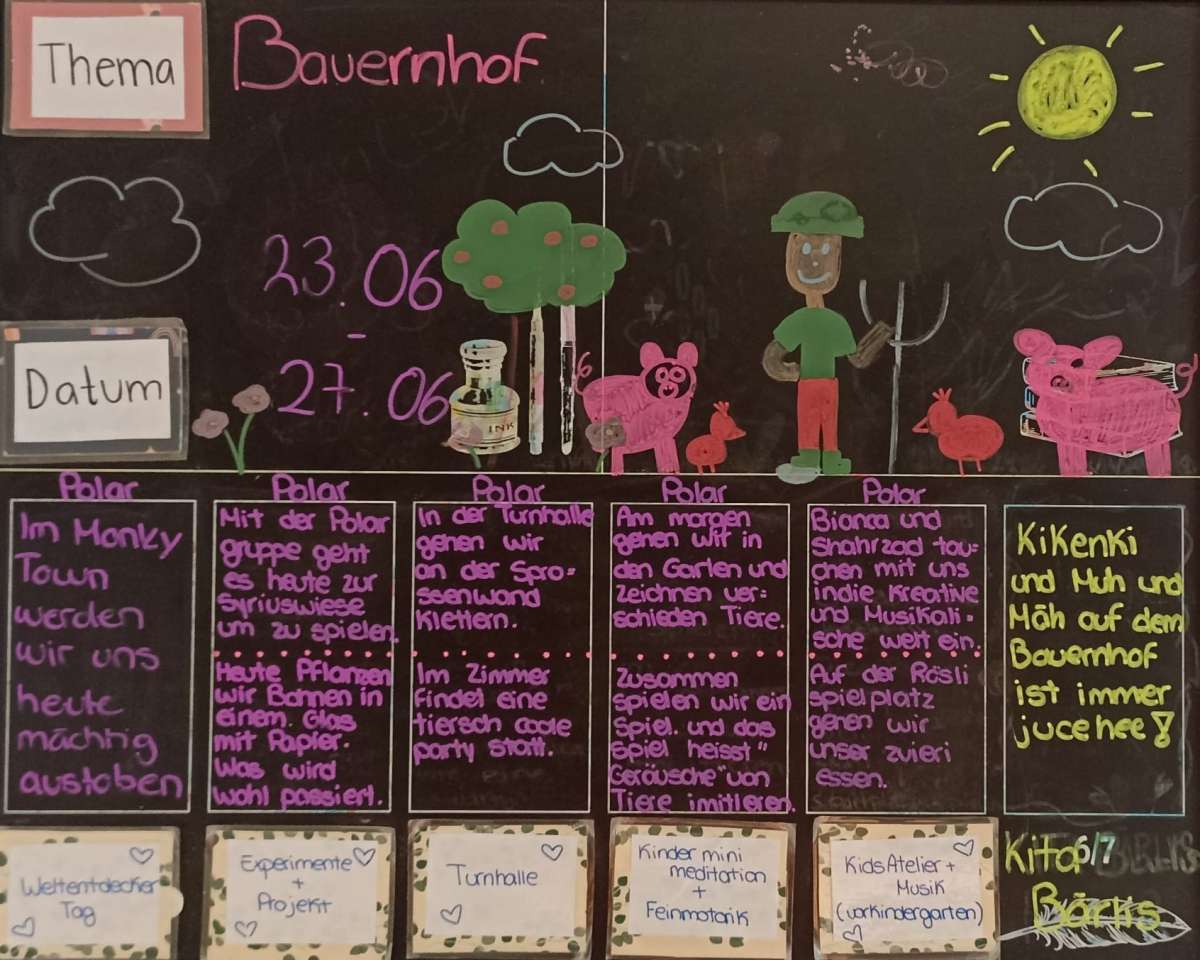 Thema
Bauernhof
23.06
-
27.06
Datum
INK
Polar
Im Monky
Town
werden
wir uns
heute
mächtig
austoben
Polar
Mit der Polar
gruppe geht
es heute zur
Syriuswiese
um zu spielen.
Heute Pflanzen
wir Bohnen in
einem. Glas
mit Papier.
Was wird
wohl passiert.
Polar
In der Turnhalle
gehen wir
an der Spro=
ssenwand
klettern.
Im Zimmer
findet eine
tiersch coole
party statt.
Polar
Am morgen
gehen wir in
den Garten und
zeichnen ver=
schieden Tiere.
Zusammen
spielen wir ein
Spiel. und das
Spiel heisst"
Geräusche"von
Tiere imitieren.
Polar
Bianca und
Shahrzad tau=
chen mit uns
indie Kreative
und Musikali=
sche welt ein.
Auf der Rösli
spielplatz
gehen wir
unser zvieri
essen.
KiKenki
und Muh und
Mäh auf dem
Bauernhof
ist immer
jucehee!
Weltentdecker
Tag
Experimente
+
Projekt
Turnhalle
Kinder mini
meditation
+
Feinmotorik
KidsAtelier +
Musik
(vorkindergarten)
Kita 6/7
Bärks